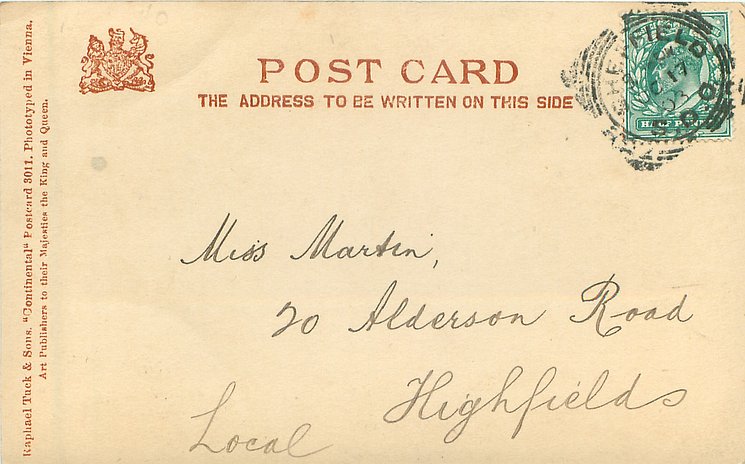 POST CARD
THE ADDRESS TO BE WRITTEN ON THIS SIDE
SHEFFIELD
HALF PENNY
Miss Martin,
20 Alderson Road
Highfields
Local
Raphael Tuck & Sons. "Continental" Postcard 3011. Phototyped in Vienna.
Art Publishers to their Majesties the King and Queen.